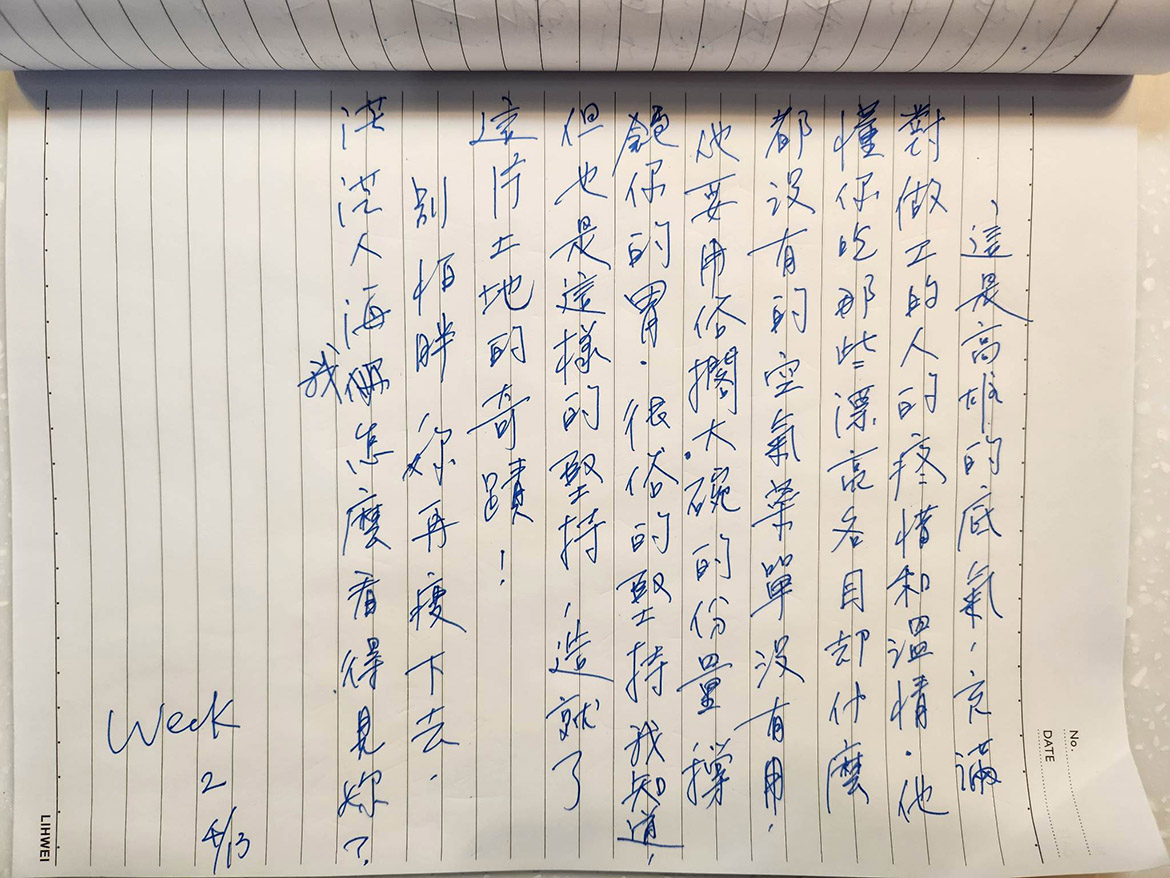 No.
DATE
這是高雄的底氣!充滿
對做工的人的疼惜和溫情.他
懂你吃那些漂亮名目却什麼
都沒有的空氣菜單沒有用,
他要用俗擱大碗的份量撐
飽你的胃.很俗的堅持我知道,
但也是這樣的堅持,造就了
這片土地的奇蹟!
別怕胖 妳再瘦下去.
茫茫人海我們怎麼看得見妳?
Week
2
4/13
LIHWEI